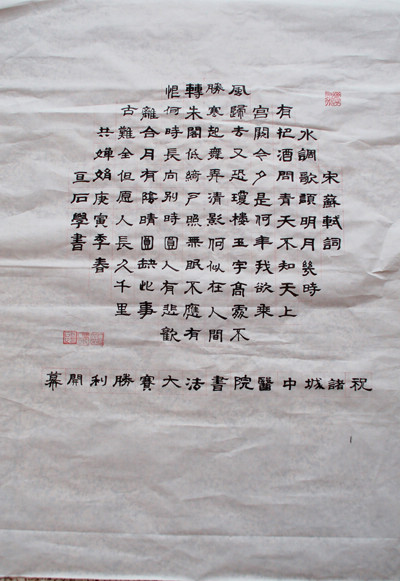 宋蘇軾詞
水調歌頭明月幾時
有把酒問青天不知天上
宫闕今夕是何年我欲乘
風歸去又恐瓊樓玉宇高處不
勝寒起舞弄清影何似在人間
轉朱閣低綺戶照無眠不應有
恨何時長向別時圓人有悲歡
離合月有陰晴圓缺此事
古難全但愿人長久千里
共嬋娟庚寅季春
亘石學書
祝諸城中醫院書法大賽勝利開幕